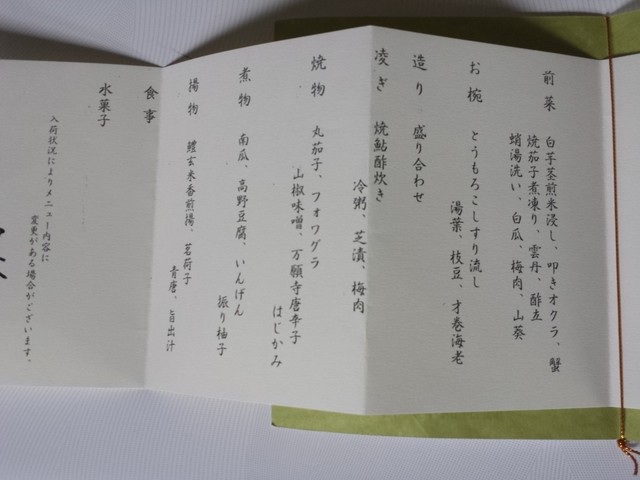 前菜　白芋茎煎米浸し、叩きオクラ、蟹
焼茄子煮凍り、雲丹、酢立
蛸湯洗い、白瓜、梅肉、山葵
お椀　とうもろこしすり流し
湯葉、枝豆、才巻海老
造り　盛り合わせ
凌ぎ　焼鮎酢炊き
冷粥、芝漬、梅肉
焼物　丸茄子、フォワグラ
山椒味噌、万願寺唐辛子
はじかみ
煮物　南瓜、高野豆腐、いんげん
振り柚子
揚物　鱧玄米香煎揚、茗荷子
青唐、旨出汁
食事
水菓子
入荷状況によりメニュー内容に
変更がある場合がございます。